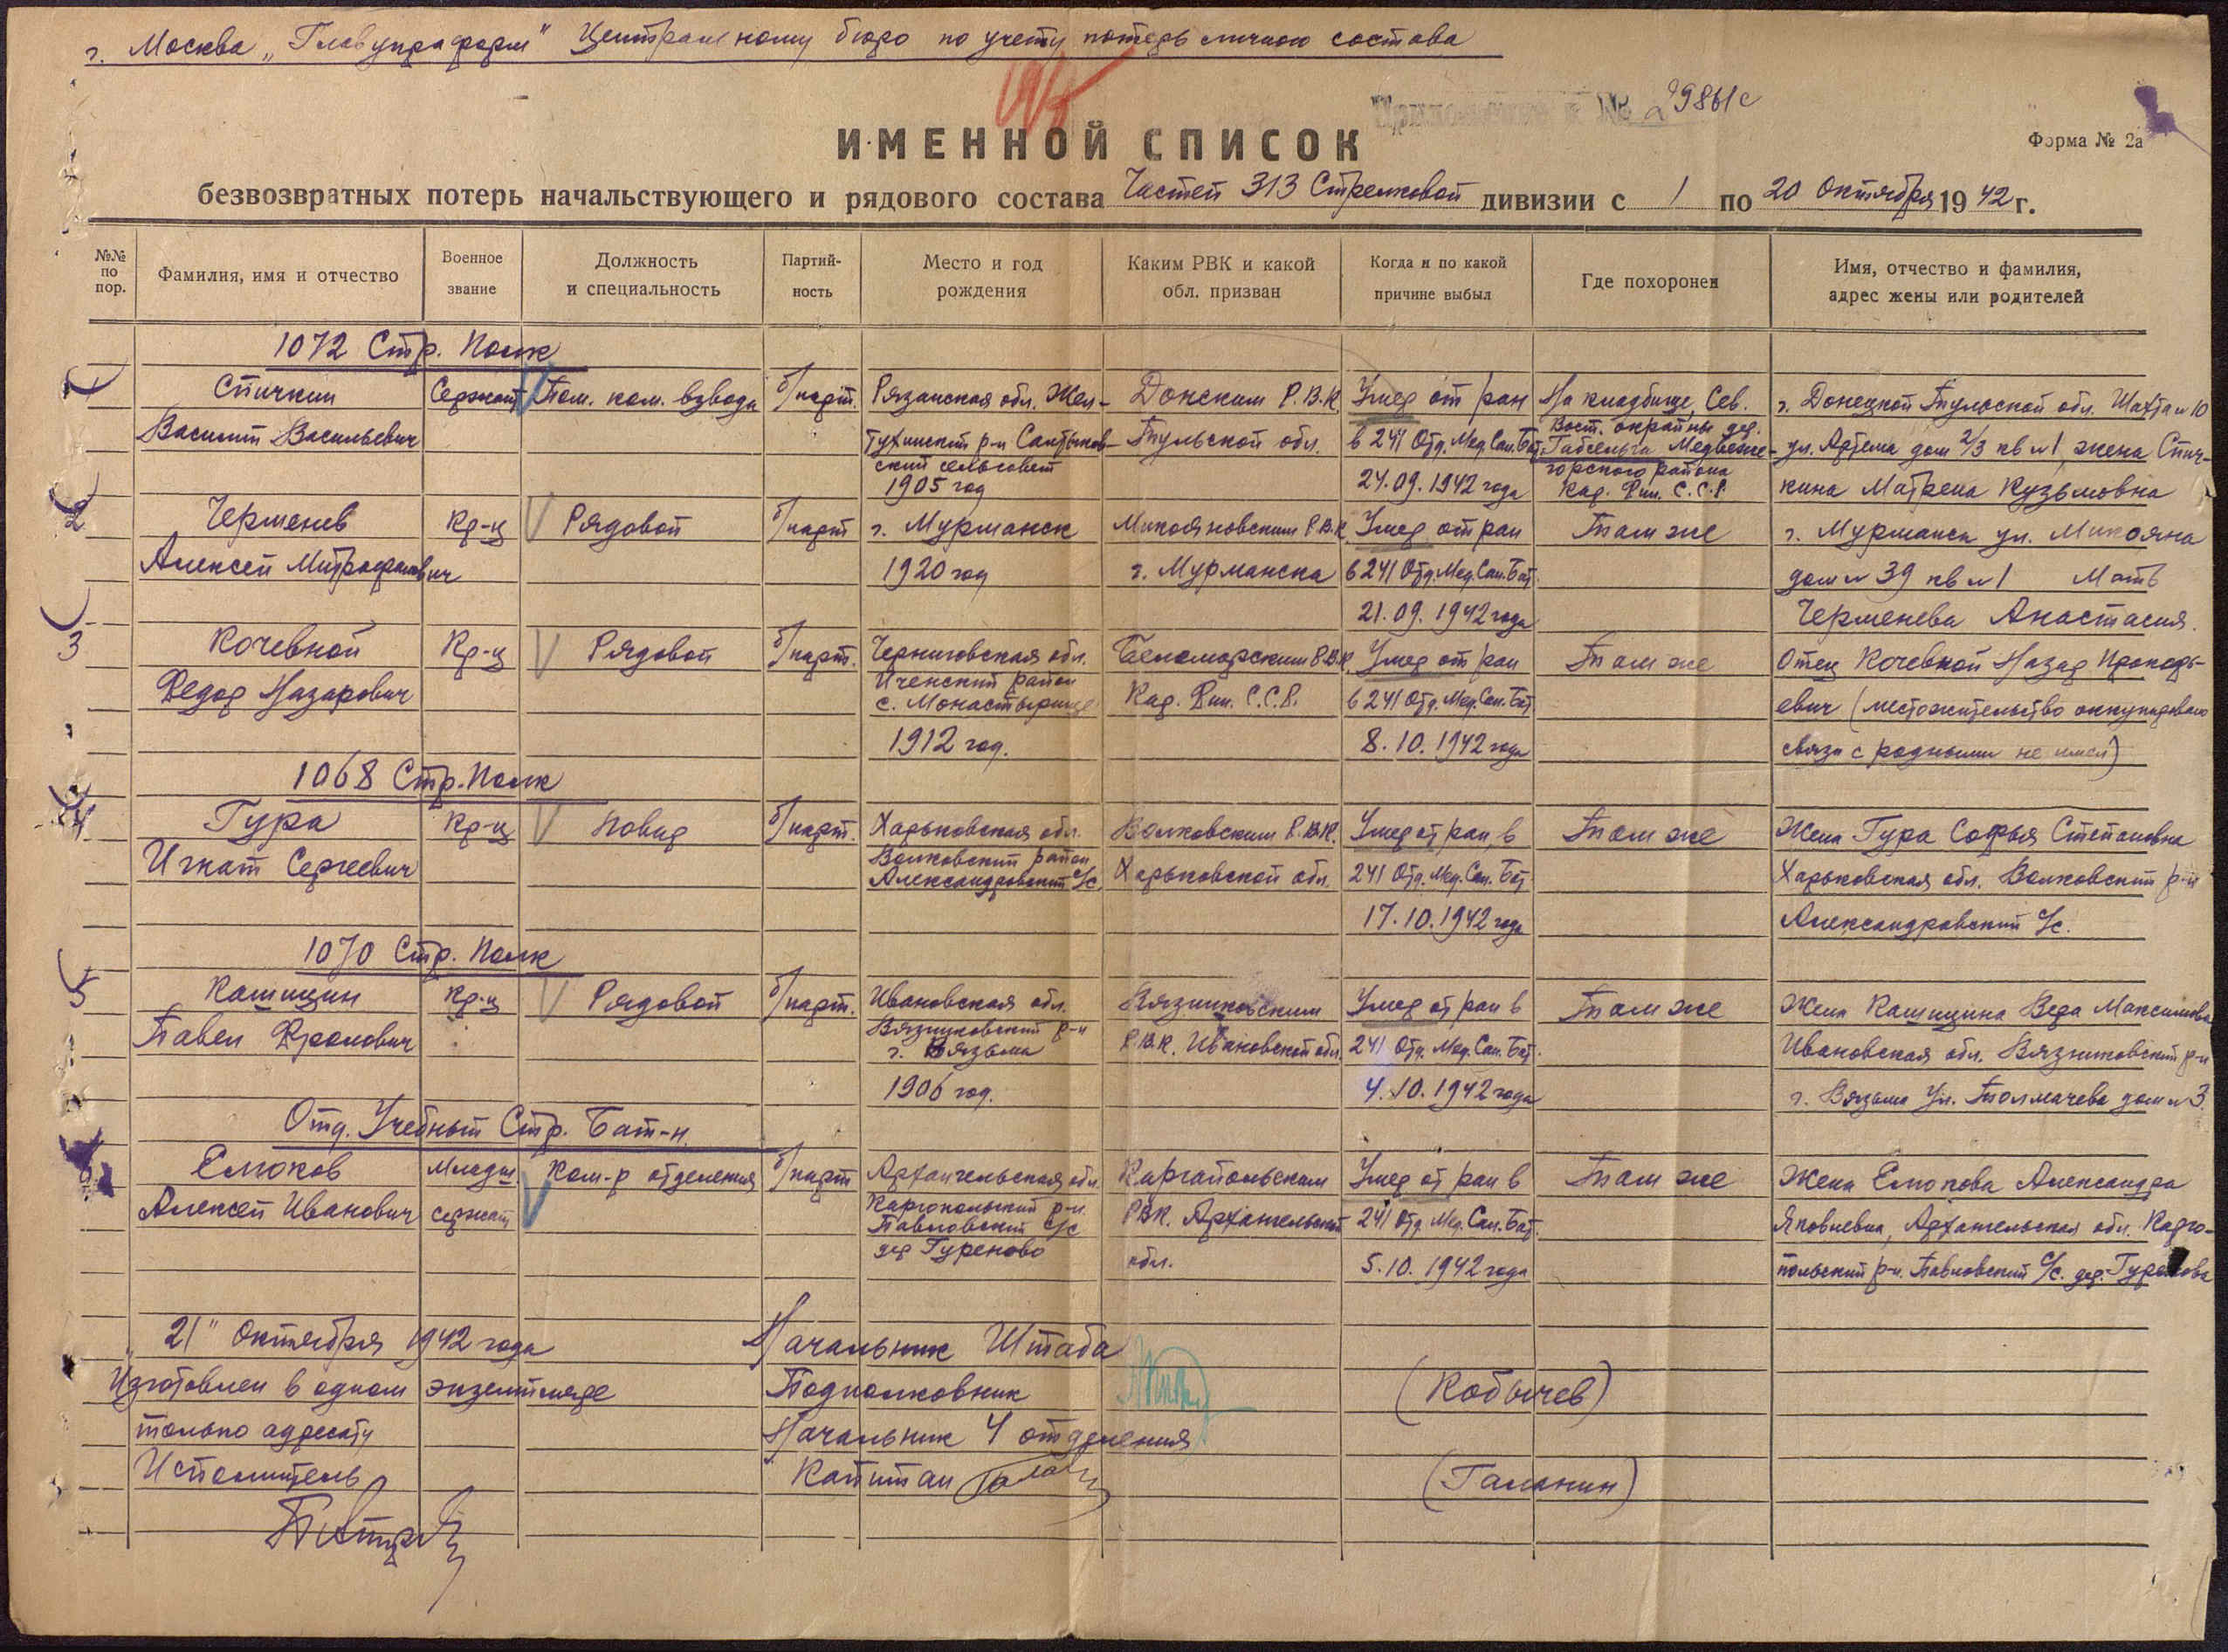 г. Москва „Главупраформ" Центральному бюро по учету потерь личного состава
Приложение к № 29861с
ИМЕННОЙ СПИСОК
Форма № 2а
безвозвратных потерь начальствующего и рядового состава Частей 313 Стрелковой дивизии с 1 по 20 Октября 1942 г.
№№ по пор.
Фамилия, имя и отчество
Военное звание
Должность и специальность
Партий-ность
Место и год рождения
Каким РВК и какой обл. призван
Когда и по какой причине выбыл
Где похоронен
Имя, отчество и фамилия, адрес жены или родителей
1072 Стр. Полк
1
Спичкин
Василий Васильевич
Сержант
Пом. ком. взвода
б/парт.
Рязанская обл. Жел-
тухинский р-н Салтыков-
ский сельсовет
1905 год
Донским Р.В.К.
Тульской обл.
Умер от ран
в 241 Отд. Мед. Сан. Бат.
24.09.1942 года
На кладбище, Сев.
Вост. окраины дер.
Габсельга Медвеже-
горского района
Кар. Фин. С.С.Р.
г. Донецкой Тульской обл. Шахта № 10
ул. Артема дом 2/3 кв №1, жена Спич-
кина Матрена Кузьмовна
2
Черменев
Алексей Митрофанович
Кр-ц
Рядовой
б/парт
г. Мурманск
1920 год
Микояновским Р.В.К.
г. Мурманска
Умер от ран
в 241 Отд. Мед. Сан. Бат.
21.09.1942 года
Там же
г. Мурманск ул. Микояна
дом № 39 кв №1 Мать
Черменева Анастасия.
3
Кочевной
Федор Назарович
Кр-ц
Рядовой
б/парт.
Черниговская обл.
Иченский район
с. Монастырище
1912 год.
Беломорским Р.В.К.
Кар. Фин. С.С.Р.
Умер от ран
в 241 Отд. Мед. Сан. Бат.
8.10.1942 года
Там же
Отец Кочевной Назар Прокорь-
евич (местожительство оккупировано
связи с родными не имел)
1068 Стр. Полк
4
Гура
Игнат Сергеевич
Кр-ц
Повар
б/парт.
Харьковская обл.
Волковский район
Александровский с/с
Волковским Р.В.К.
Харьковской обл.
Умер от ран, в
241 Отд. Мед. Сан. Бат.
17.10.1942 года
Там же
Жена Гура Софья Степановна
Харьковская обл. Волковский р-н
Александровский с/с.
1070 Стр. Полк
5
Кашицин
Павел Фролович
Кр-ц
Рядовой
б/парт.
Ивановская обл.
Вязниковский р-н
г. Вязьма
1906 год.
Вязниковским
Р.В.К. Ивановской обл.
Умер от ран в
241 Отд. Мед. Сан. Бат.
4.10.1942 года
Там же
Жена Кашицина Вера Максимовна
Ивановская обл. Вязниковский р-н
г. Вязьма Ул. Толмачева дом № 3.
Отд. Учебный Стр. Бат-н.
6
Елюков
Алексей Иванович
Младш.
сержант
Ком-р отделения
б/парт
Архангельская обл.
Каргопольский р-н.
Павловский с/с
дер Гуреново
Каргапольским
РВК. Архангельской
обл.
Умер от ран в
241 Отд. Мед. Сан. Бат.
5.10.1942 года
Там же
Жена Елюкова Александра
Яковлевна, Архангельская обл. Карго-
польский р-н. Павловский с/с. дер. Гуренова
„21" Октября 1942 года
Изготовлен в одном экземпляре
только адресату
Исполнитель
Начальник Штаба
Подполковник
(Кобычев)
Начальник 4 отделения
Капитан
(Галанин)